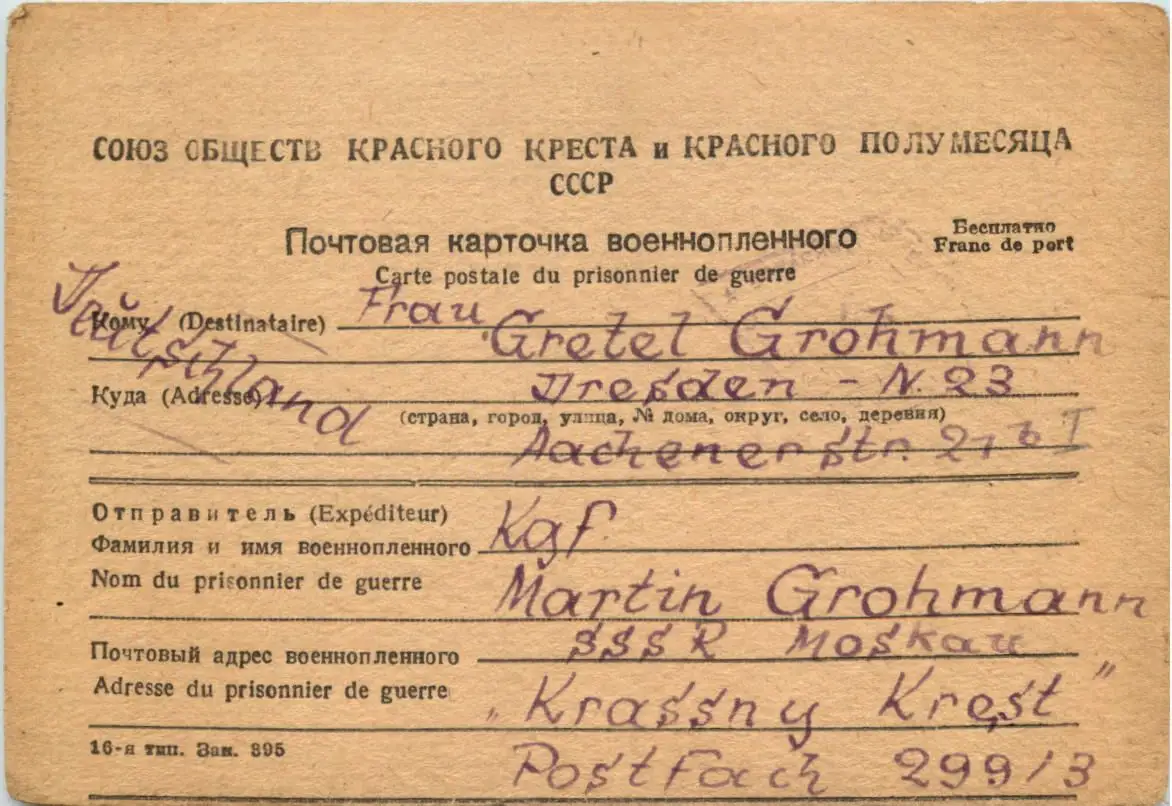 СОЮЗ ОБЩЕСТВ КРАСНОГО КРЕСТА и КРАСНОГО ПОЛУМЕСЯЦА
СССР
Почтовая карточка военнопленного
Бесплатно
Franc de port
Carte postale du prisonnier de guerre
Кому (Destinataire) Frau
Gretel Grohmann
Deutschland
Куда (Adresse) Dresden - N. 23
(страна, город, улица, № дома, округ, село, деревня)
Aachener Str. 27 b I
Отправитель (Expéditeur)
Фамилия и имя военнопленного Kgf
Nom du prisonnier de guerre Martin Grohmann
Почтовый адрес военнопленного SSSR Moskau
Adresse du prisonnier de guerre „Krassny Krest"
16-я тип. Зак. 895
Postfach 299/3